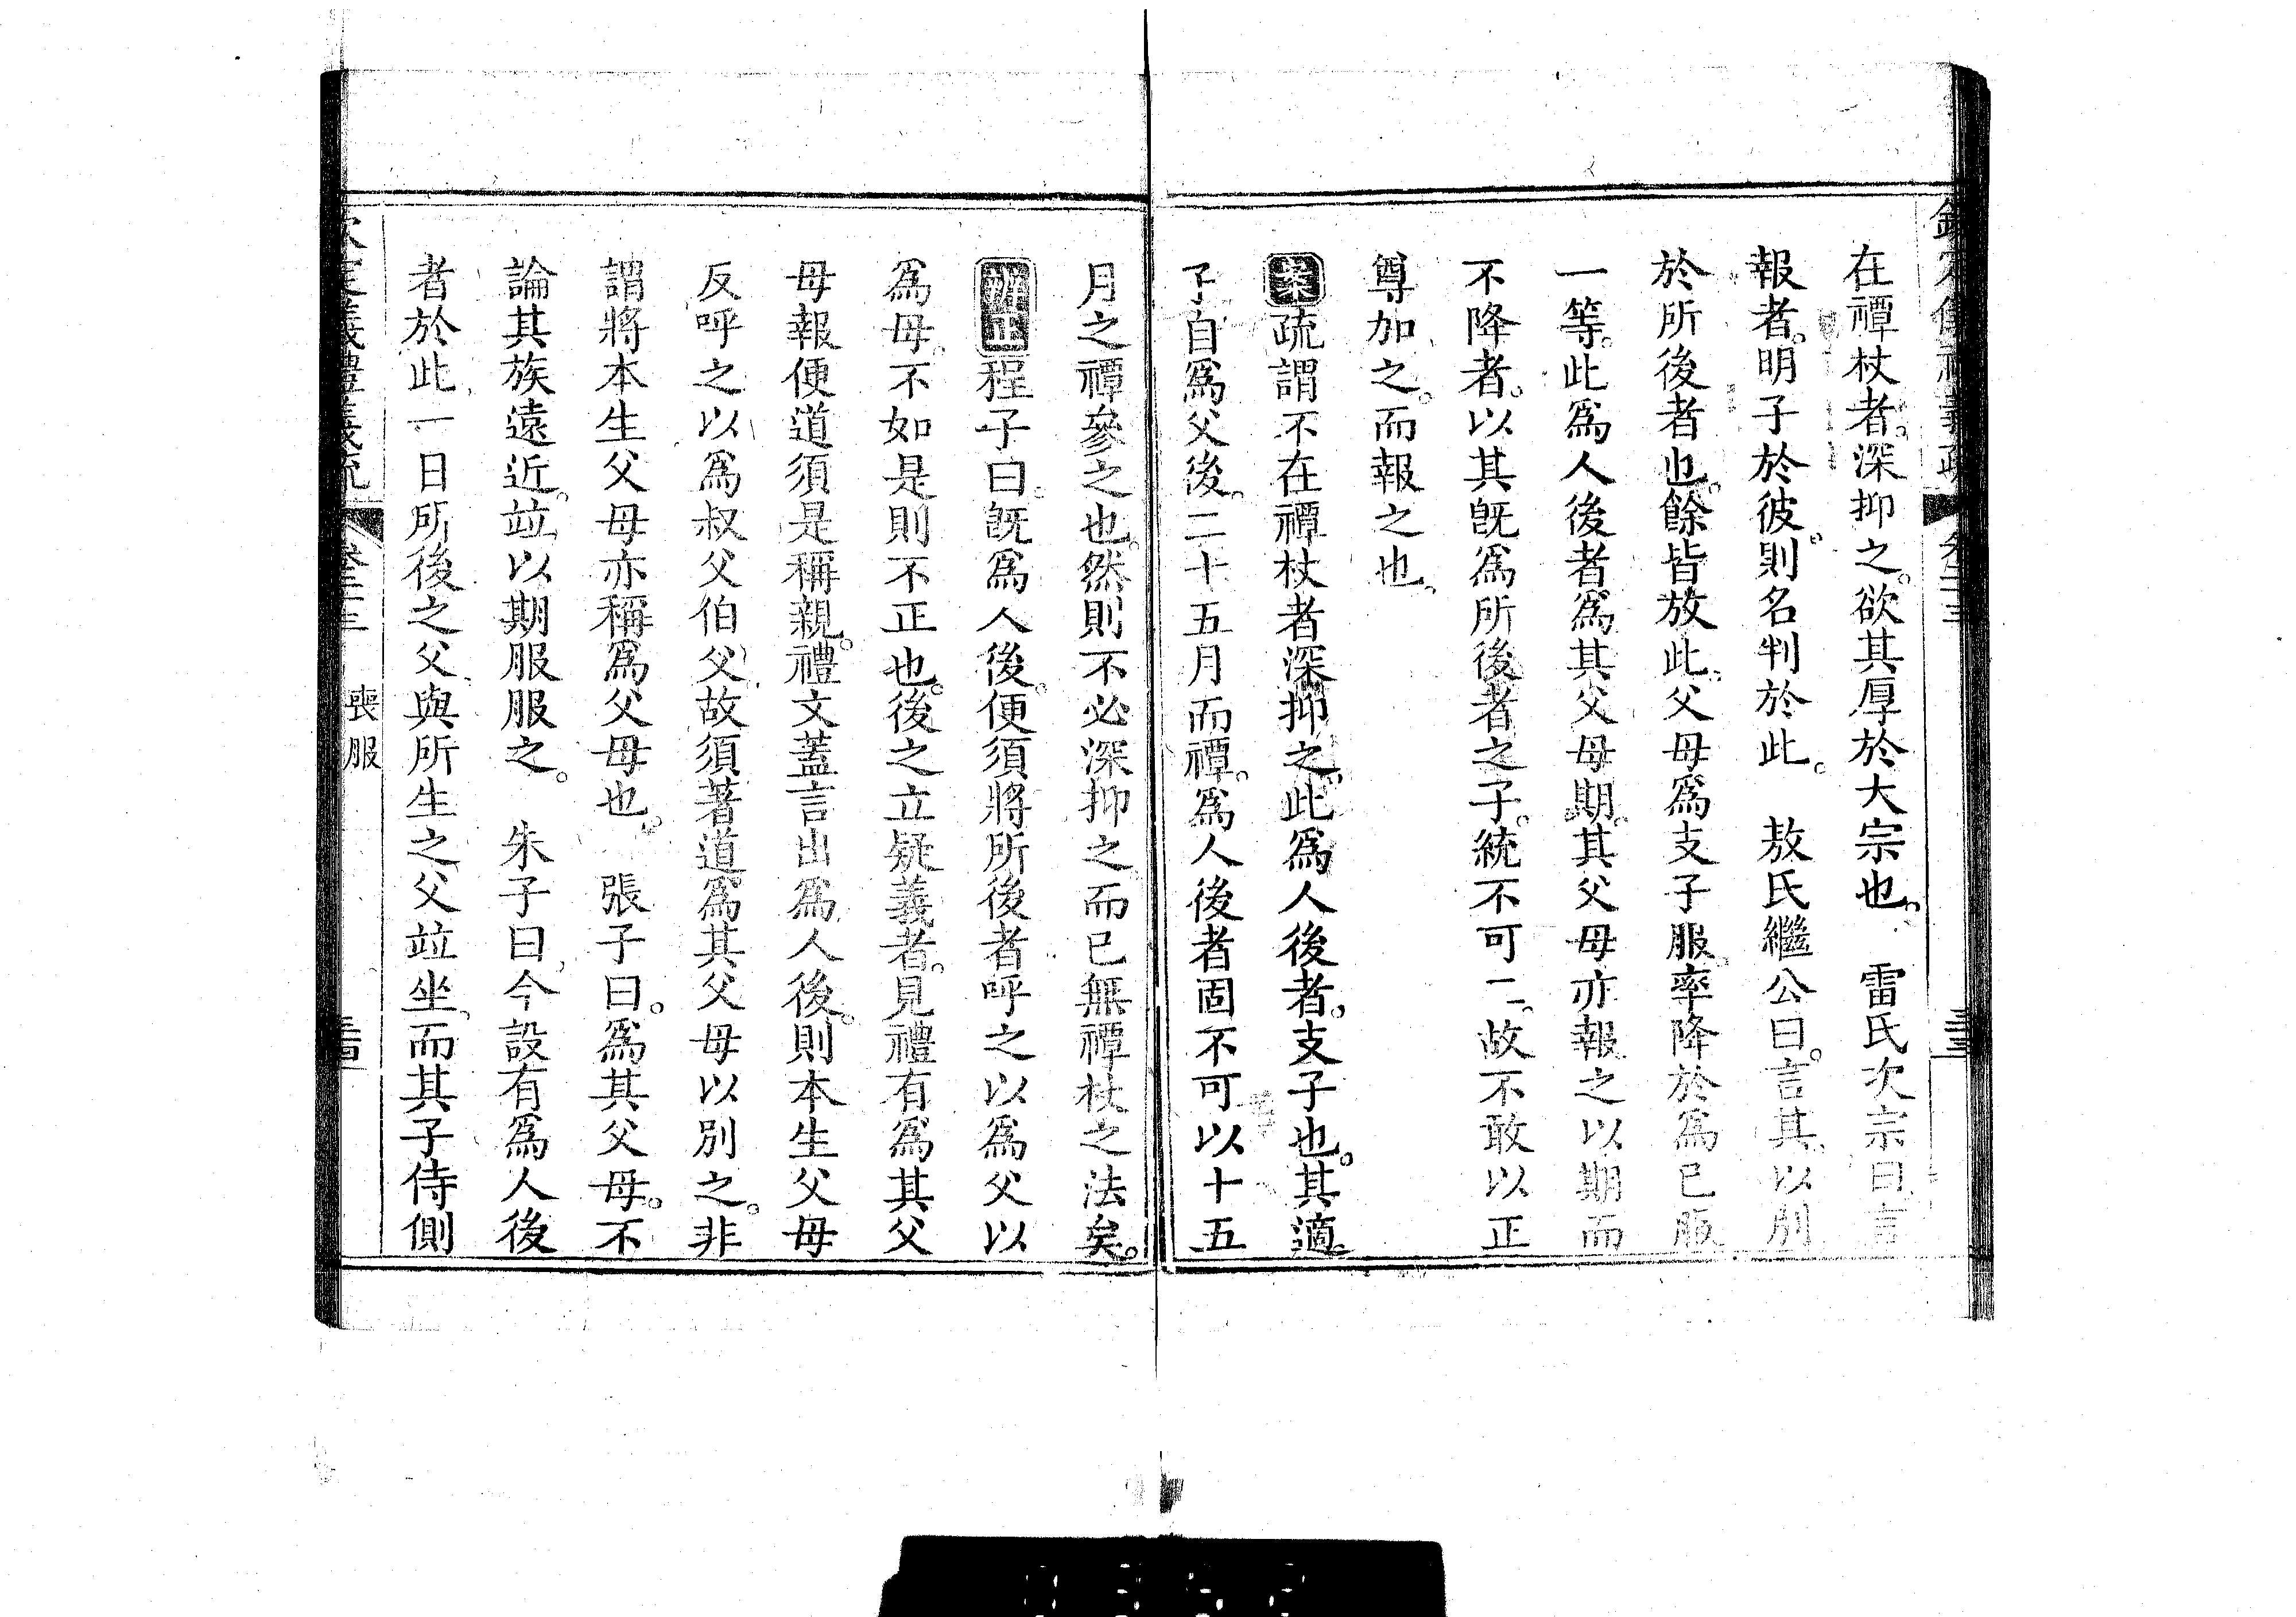 在禫杖者。深抑之。欲其厚於大宗也。　雷氏次宗曰言
報者。明子於彼。則名判於此。　敖氏繼公曰。言其。以別
於所後者也。餘皆放此。父母爲支子服。率降於爲己服
一等。此爲人後者爲其父母期。其父母亦報之以期而
不降者。以其旣爲所後者之子。統不可二。故不敢以正
尊加之。而報之也。
案疏謂不在禫杖者深抑之。此爲人後者。支子也。其適
子自爲父後。二十五月而禫。爲人後者固不可以十五
月之禫參之也。然則不必深抑之而已無禫杖之法矣。
辨正程子曰。旣爲人後。便須將所後者呼之以爲父以
爲母。不如是則不正也。後之立疑義者。見禮有爲其父
母報便道須是稱親。禮文蓋言出爲人後。則本生父母
反呼之以爲叔父伯父。故須著道爲其父母以別之。非
謂將本生父母亦稱爲父母也。　張子曰。爲其父母。不
論其族遠近。竝以期服服之。　朱子曰。今設有爲人後
者於此一日所後之父與所生之父竝坐。而其子侍側
欽定義禮義疏　卷二三　喪服